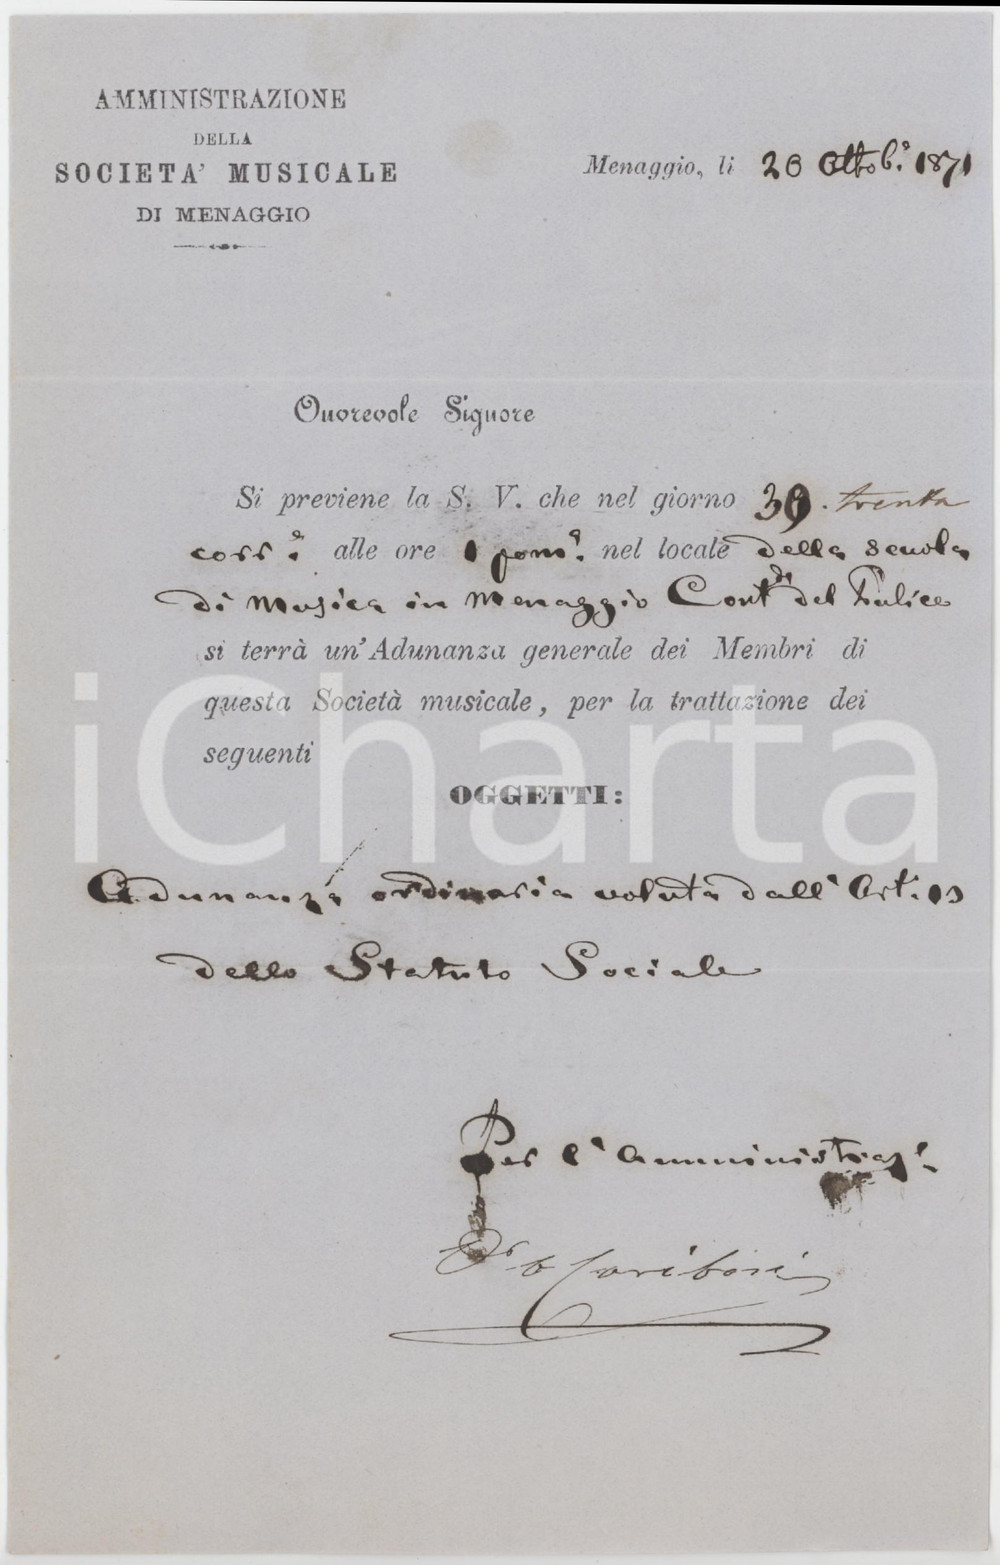 AMMINISTRAZIONE
DELLA
SOCIETA' MUSICALE
DI MENAGGIO
Menaggio, li 26 Ottob.e 1871
Onorevole Signore
Si previene la S. V. che nel giorno 30. trenta
corr.e alle ore 1 pom.e nel locale della scuola
di Musica in Menaggio Cont.da del Pulice
si terrà un' Adunanza generale dei Membri di
questa Società musicale, per la trattazione dei
seguenti
OGGETTI:
Adunanza ordinaria voluta dall' Art.
dello Statuto Sociale
Per l' Amministraz.e
iCharta